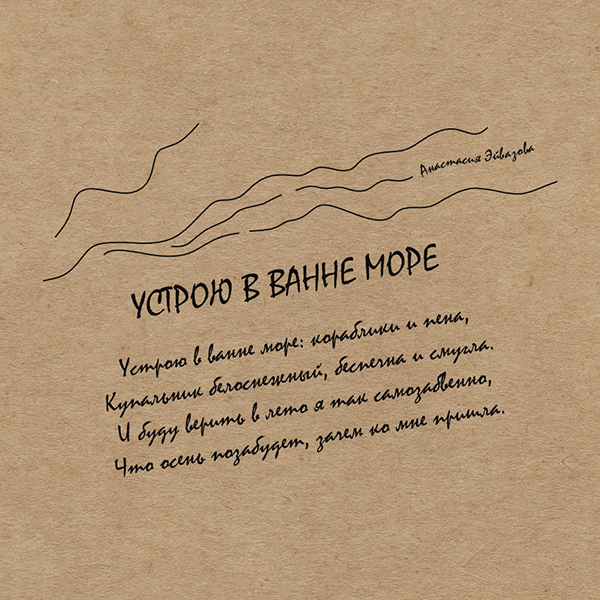 Анастасия Эйвазова
УСТРОЮ В ВАННЕ МОРЕ
Устрою в ванне море: кораблики и пена,
Купальник белоснежный, беспечна и смугла.
И буду верить в лето я так самозабвенно,
Что осень позабудет, зачем ко мне пришла.